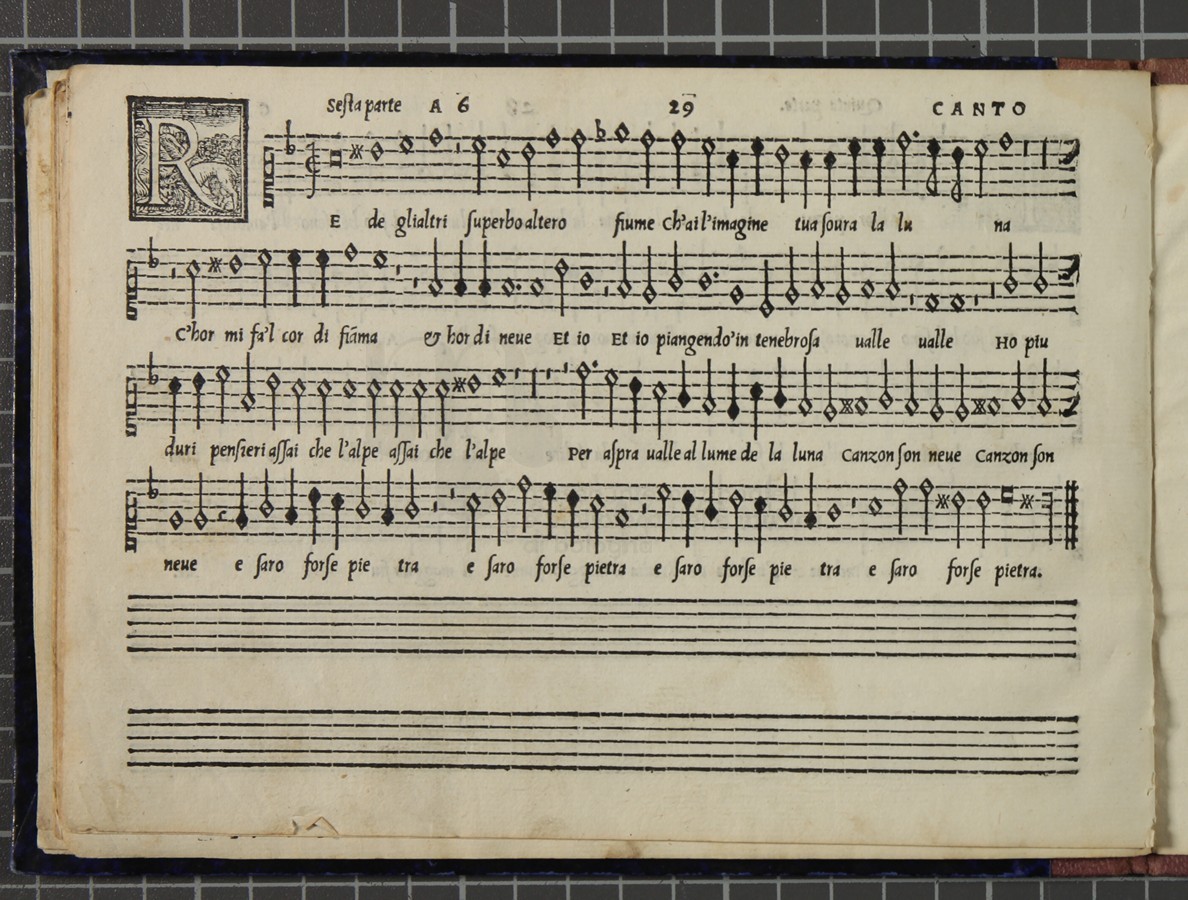 Seſta parte A 6 29 CANTO
RE de glialtri ſuperbo altero fiume Ch'ai l'imagine tua ſoura la lu na
C'hor mi fa'l cor di fiāma & hor di neue Et io Et io piangendo'in tenebroſa ualle ualle Ho piu
duri penſieri aſſai che l'alpe aſſai che l'alpe Per aſpra ualle al lume de la luna Canzon ſon neue Canzon ſon
neue e ſaro forſe pie tra e ſaro forſe pietra e ſaro forſe pie tra e ſaro forſe pietra.